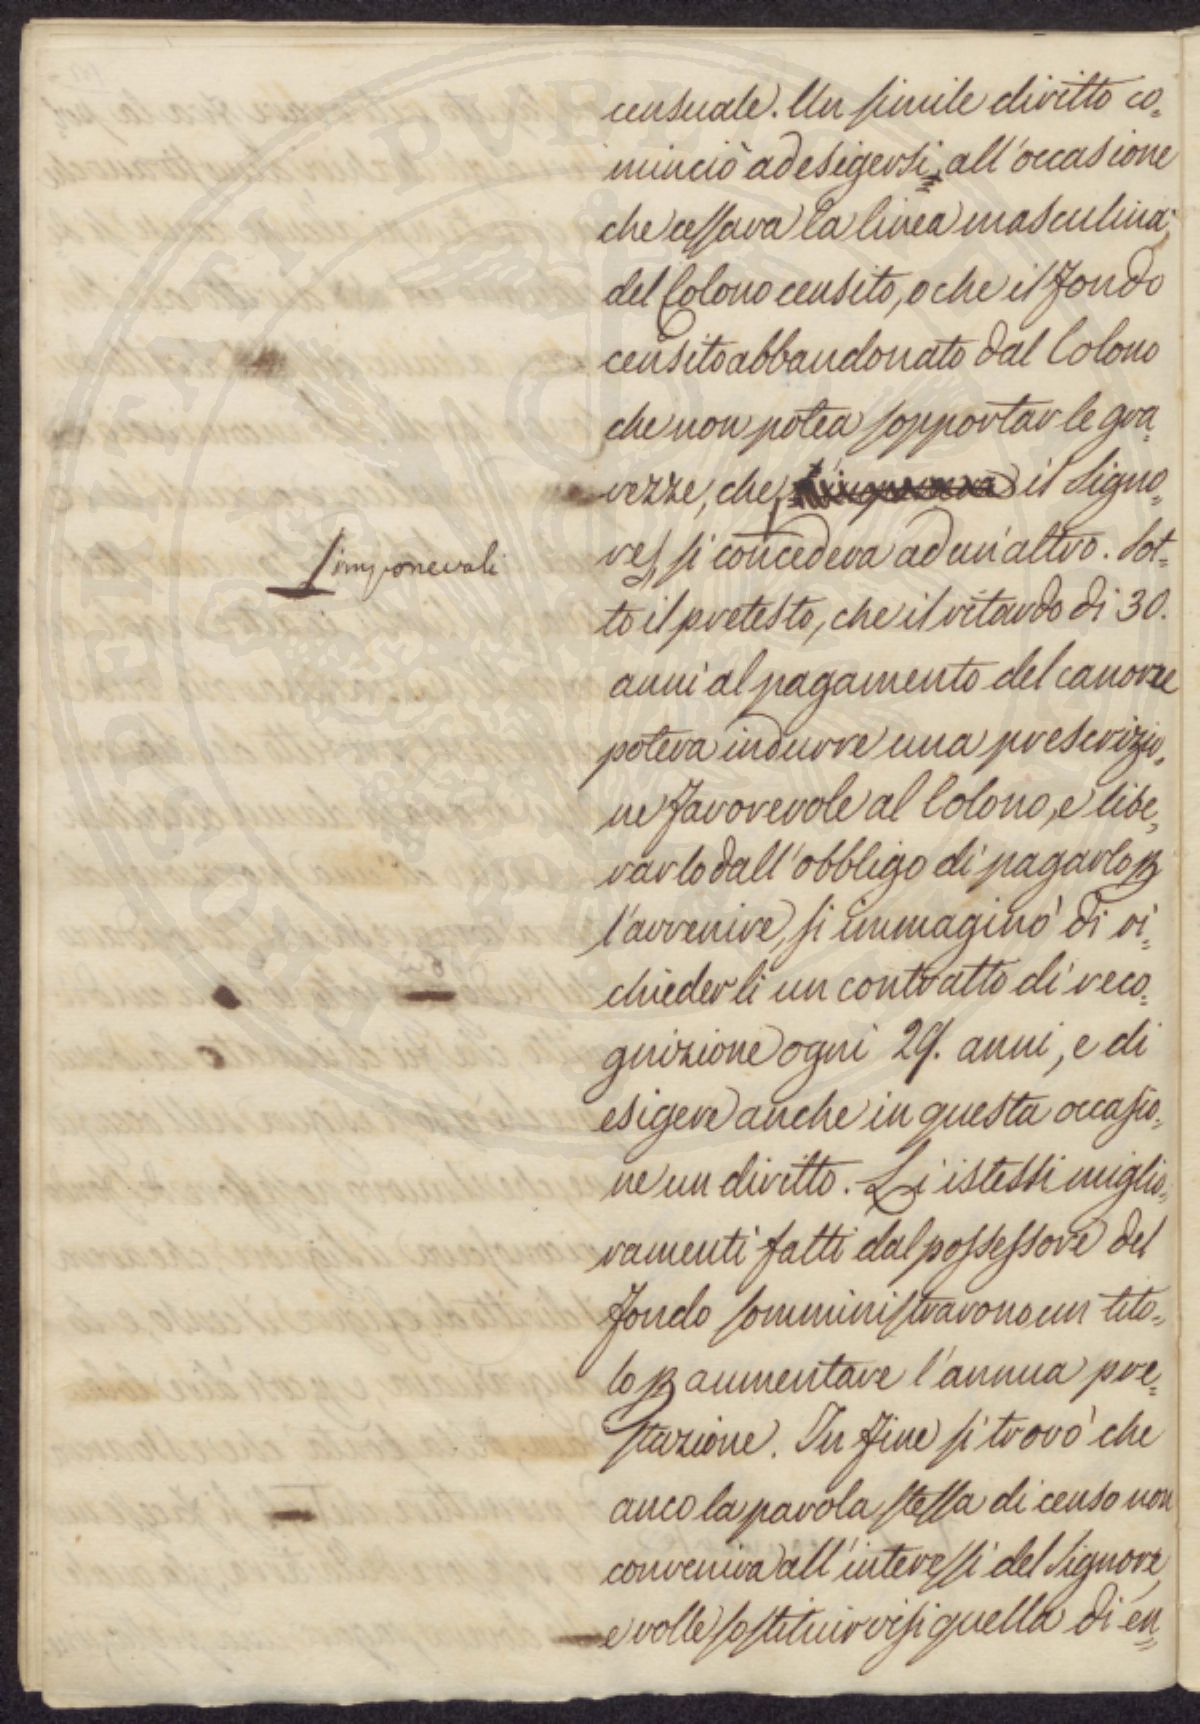 censuale. Un simile diritto co=
minciò ad esigersi, all'occasione
che cessava la linea masculina
del Colono censito, o che il fondo
censito abbandonato dal Colono
che non potea sopportar le gra=
vezze, che il Signo=
l'imponevali
re, si concedeva ad un'altro. Sot=
to il pretesto, che il ritardo di 30.
anni al pagamento del canone
poteva indurre una prescrizio=
ne favorevole al Colono, e libe=
rarlo dall'obbligo di pagarlo p
l'avvenire, si immaginò di ri=
chiederli un contratto di reco=
gnizione ogni 29. anni, e di
esigere anche in questa occasio=
ne un diritto. Li istessi miglio=
ramenti fatti dal possessore del
fondo somministravono un tito=
lo p aumentare l'annua pre=
stazione. In fine si trovò che
anco la parola stessa di censo non
conveniva all'interessi del Signore,
e volle sostituirvisi quella di en=